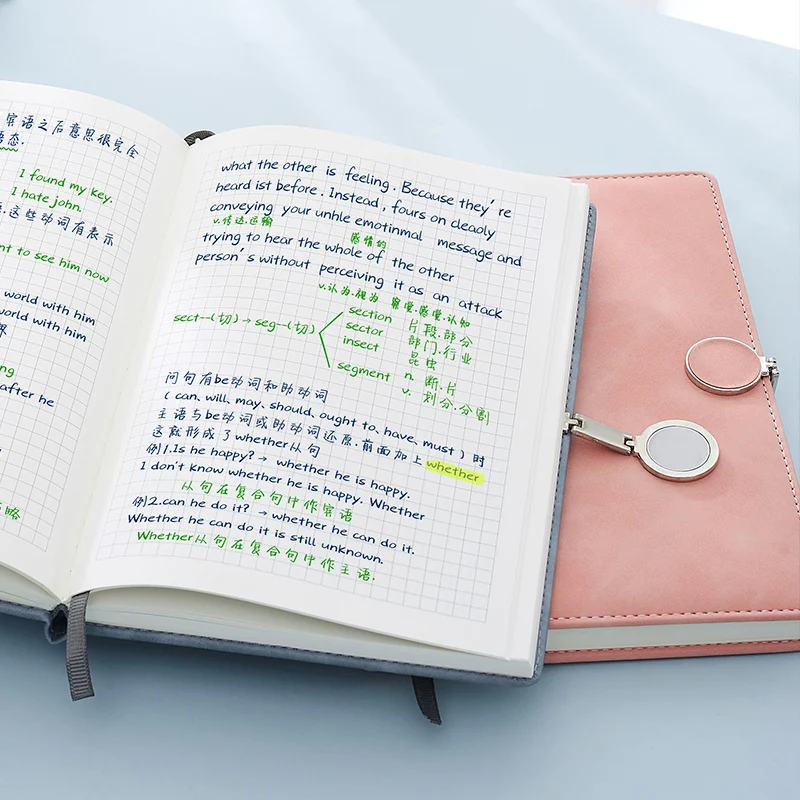 宾语之后意思很完全
语态.
I found my key.
I hate john.
这些动词有表示
nt to see him now
world with him
world with him
界
ng
after he
略
what the other is feeling. Because they're
heard ist before. Instead, fours on cleaoly
conveying your unhle emotinmal message and
v.传达.运输
感情的
trying to hear the whole of the other
person's without perceiving it as an attack
v.认为.视为 察觉.感觉.认知
sect--(切)→seg--(切)
section 片段.部分
sector 部门.行业
insect 昆虫
segment n. 断.片
v. 划分.分割
问句有be动词和助动词
( can, will, may, should, ought to, have, must ) 时
主语与be动词或助动词还原.前面加上whether
这就形成了whether从句
例1.Is he happy?→ whether he is happy.
I don't know whether he is happy. Whether
从句在复合句中作宾语
例2.can he do it? →whether he can do it.
Whether he can do it is still unknown.
Whether从句在复合句中作主语.